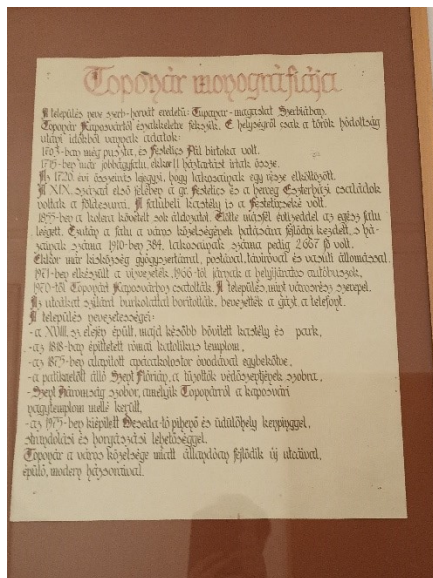 Toponár monográfiája
A település neve szerb-horvát eredetű: Tupanar-magaslat Szerbiában.
Toponár Kaposvártól északkeletre fekszik. E helységről csak a török hódoltság
utáni időkből vannak adatok:
1703-ban még puszta, és Festetics Pál birtoka volt.
1715-ben már jobbágyfalu, ekkor 11 háztartást írtak össze.
Az 1720. évi összeírás lejegyzi, hogy lakosainak egy része elköltözött.
A XIX. század első felében a gr. Festetics és a herceg Eszterházi családok
voltak a földesurai. A falubeli kastély is a Festetitseké volt.
1855-ben a kolera követelt sok áldozatot. Előtte másfél évtizeddel az egész falu
leégett. Ezután a falu a város közelségének hatására fejlődni kezdett, s há-
zainak száma 1910-ben 384, lakosainak száma pedig 2667 fő volt.
Ekkor már kisközség gyógyszertárral, postával, táviróval és vasúti állomással.
1971-ben elkészült a vízvezeték, 1966-tól járnak a helyijáratú autóbuszok.
1970-től Toponárt Kaposvárhoz csatolták. A település, mint városrész szerepel.
Az utcákat szilárd burkolattal borították, bevezették a gázt a telefont.
A település nevezetességei:
-a XVIII. sz. elején épült, majd később bővített kastély és park,
-az 1818-ban építtetett római katolikus templom,
-az 1875-ben alapított apácakolostor óvodával egybekötve,
-a patikaelőtt álló Szent Flórián, a tűzoltók védőszentjének szobra,
-Szent Háromság szobor, amelyik Toponárról a kaposvári
nagytemplom mellé került,
-az 1975-ben kiépített Deseda-tó pihenő és üdülőhely kempinggel,
strandolási és horgászási lehetőséggel.
Toponár a város közelsége miatt állandóan fejlődik új utcáival,
épülő, modern házsoraival.